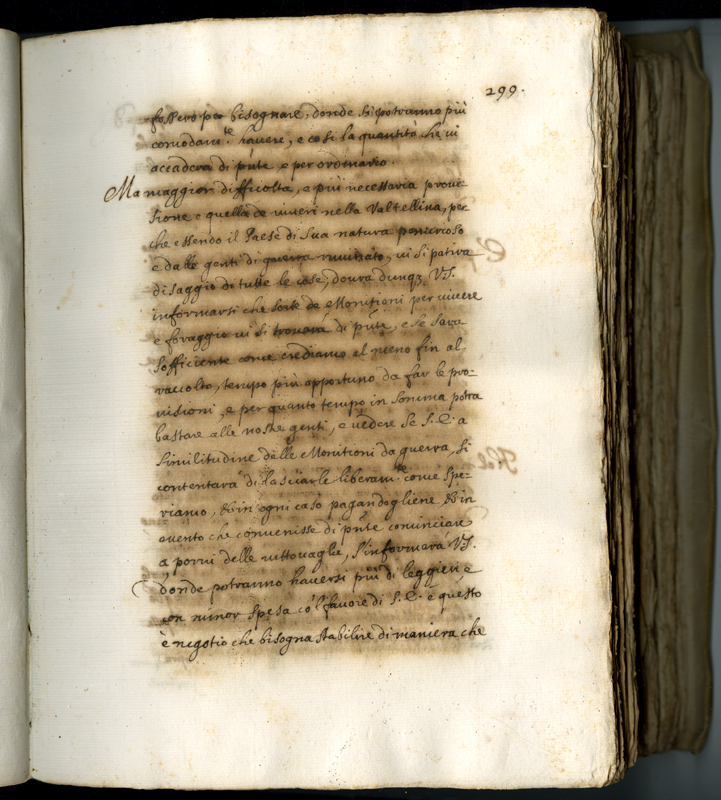 299.
fossero per bisognare, donde si potranno più
comodam.te havere, e così la quantità che vi
accaderà di p'nte e per ordinario.
Ma maggior difficoltà, e più necessaria provi-
sione e quella de viveri nella Valtellina, per
che essendo il Paese di sua natura penurioso
e dalle genti di guerra vi si pativa
disaggio di tutte le cose, dovrà dunq3 V.S.
informarsi che sorte de Monitioni per vivere
e foraggio vi si trovarà di p'nte, e se sarà
sofficiente come crediamo al meno fin al
raccolto, tempo più apportuno da far le pro-
visioni, e per quanto tempo in somma potrà
bastare alle nostre genti, e vedere se S.E. a
similitudine delle Monitioni da guerra, si
contentarà di lasciarle liberam.te come spe-
riamo, & in ogni caso pagandogliene & in
evento che convenisse di p'nte cominciare
a porvi delle vittovaglie, s'informerà V.S.
donde potranno haversi più di leggieri e
con minor spesa co'l favore di S.E. e questo
è negotio che bisogna stabilire di maniera che